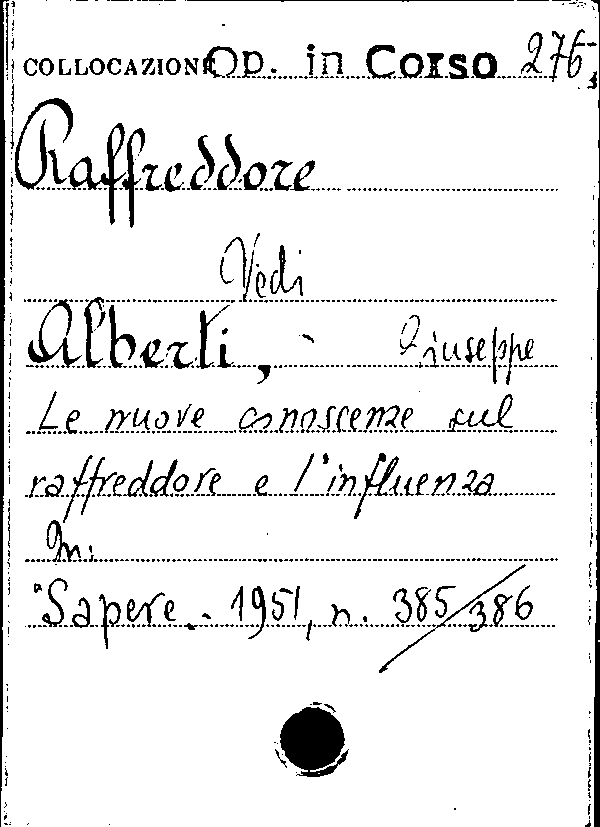 COLLOCAZIONE Op. in Corso 276
Raffreddore
Vedi
Alberti, - Giuseppe
Le nuove conoscenze sul
raffreddore e l'influenza
In:
"Sapere.- 1951, n. 385/386